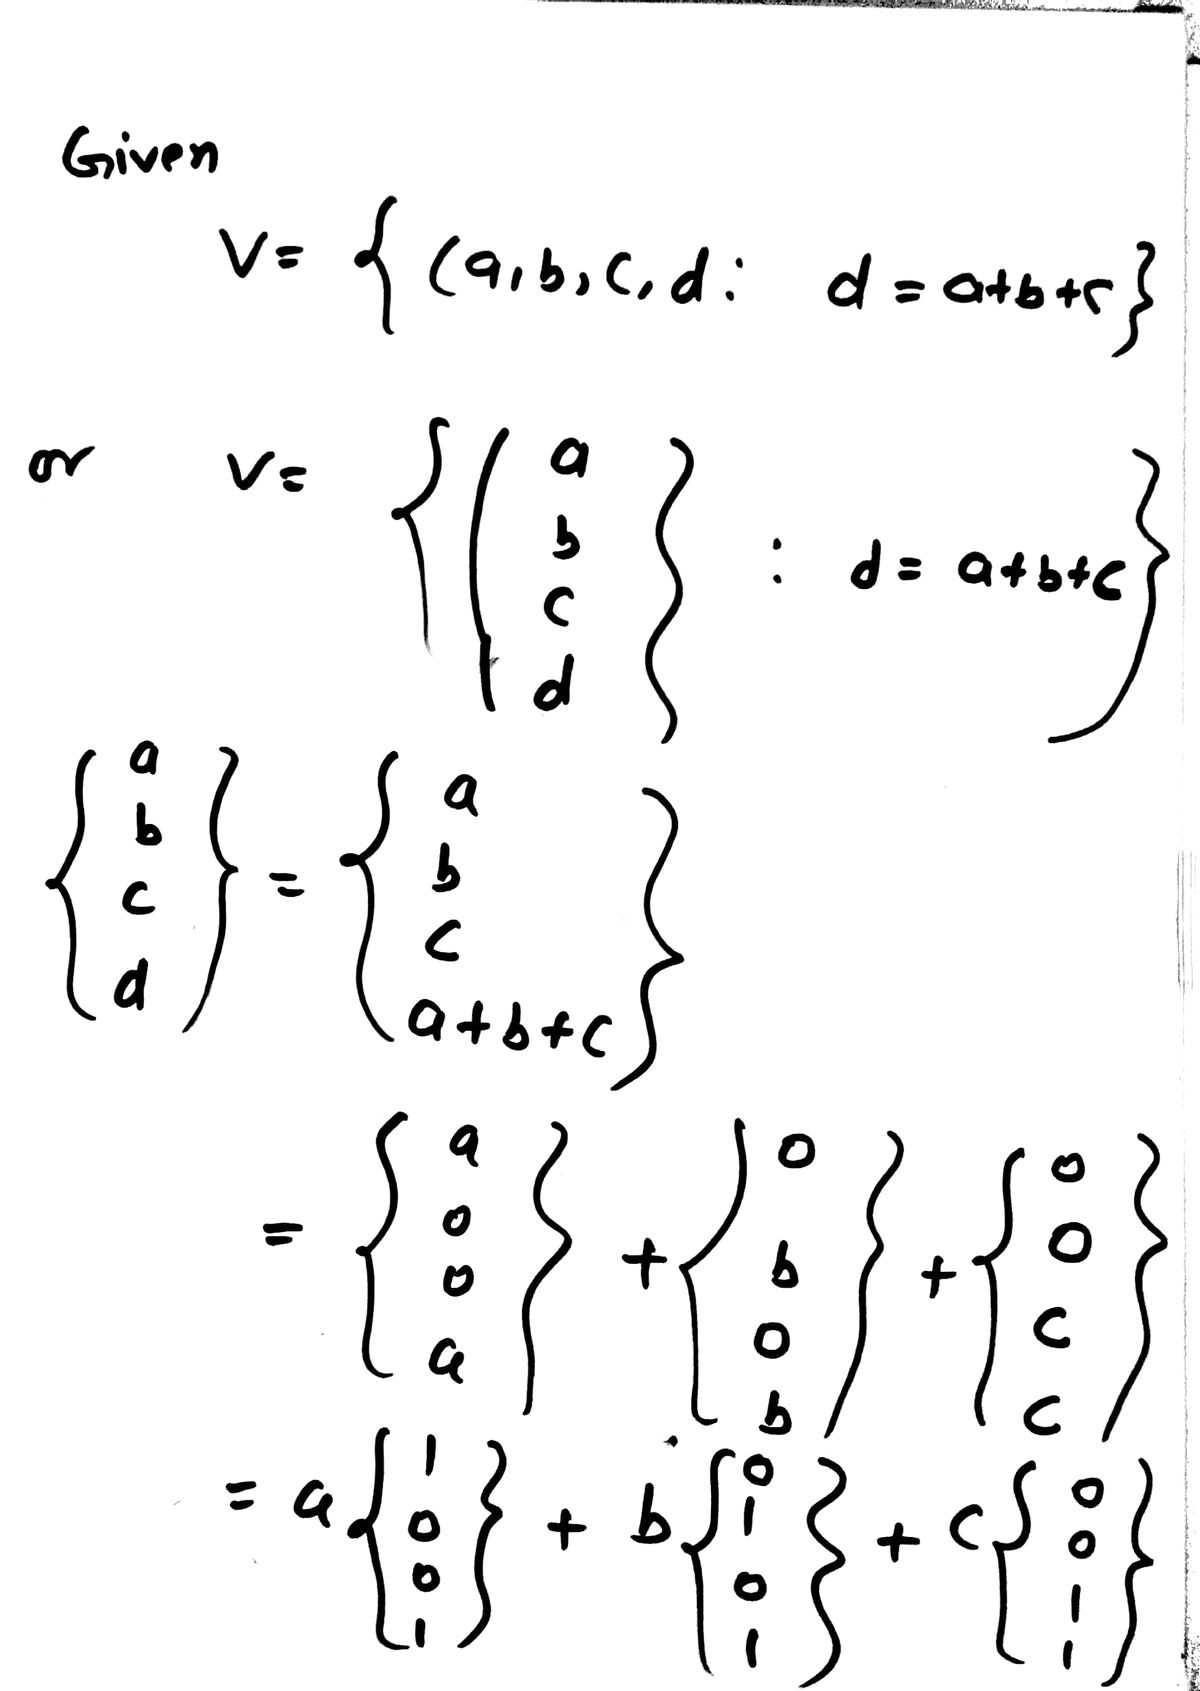 Given
V= { (a,b,c,d : d = a+b+c }
or V= { ( a b c d } : d = a+b+c }
{ a b c d } = { a b c a+b+c }
= { a 0 0 a } + { 0 b 0 b } + { 0 0 c c }
= a { 1 0 0 1 } + b { 0 1 0 1 } + c { 0 0 1 1 }